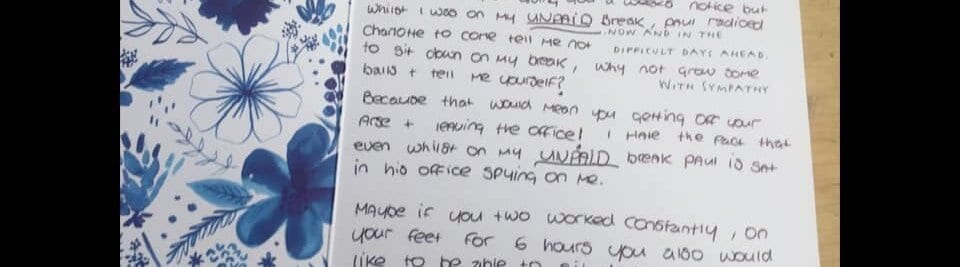 you a weeks notice but
whilst I was on my UNPAID Break, paul radioed
NOW AND IN THE
Charlotte to come tell me not
DIFFICULT DAYS AHEAD.
to sit down on my break, why not grow some
WITH SYMPATHY
balls + tell me yourself?
Because that would mean you getting off your
Arse + leaving the office! I HATE the fact that
even whilst on my UNPAID break paul is sat
in his office spying on me.
Maybe if you two worked constantly, on
your feet for 6 hours you also would
like to be able to